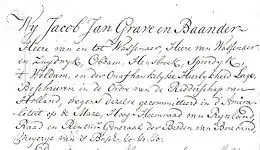 Wij Jacob Jan Grave en Baander
Heere van en tot Wassenaer, Heere van Wassenaer
en Zuijdwijk, Obdam, Hensbroek, Spierdijk,
Weldam, en der Onafhankelijke Heerlijkheid Lage,
Beschreven in de Ordre van de Ridderschap van
Holland, wegens dezelve gecommitteerd in de Admira-
liteit op de Maze, Hoog-Heemraad van Rijnland,
Raad en Rentmr. Generaal der Beeden van Braband,
's Bosch